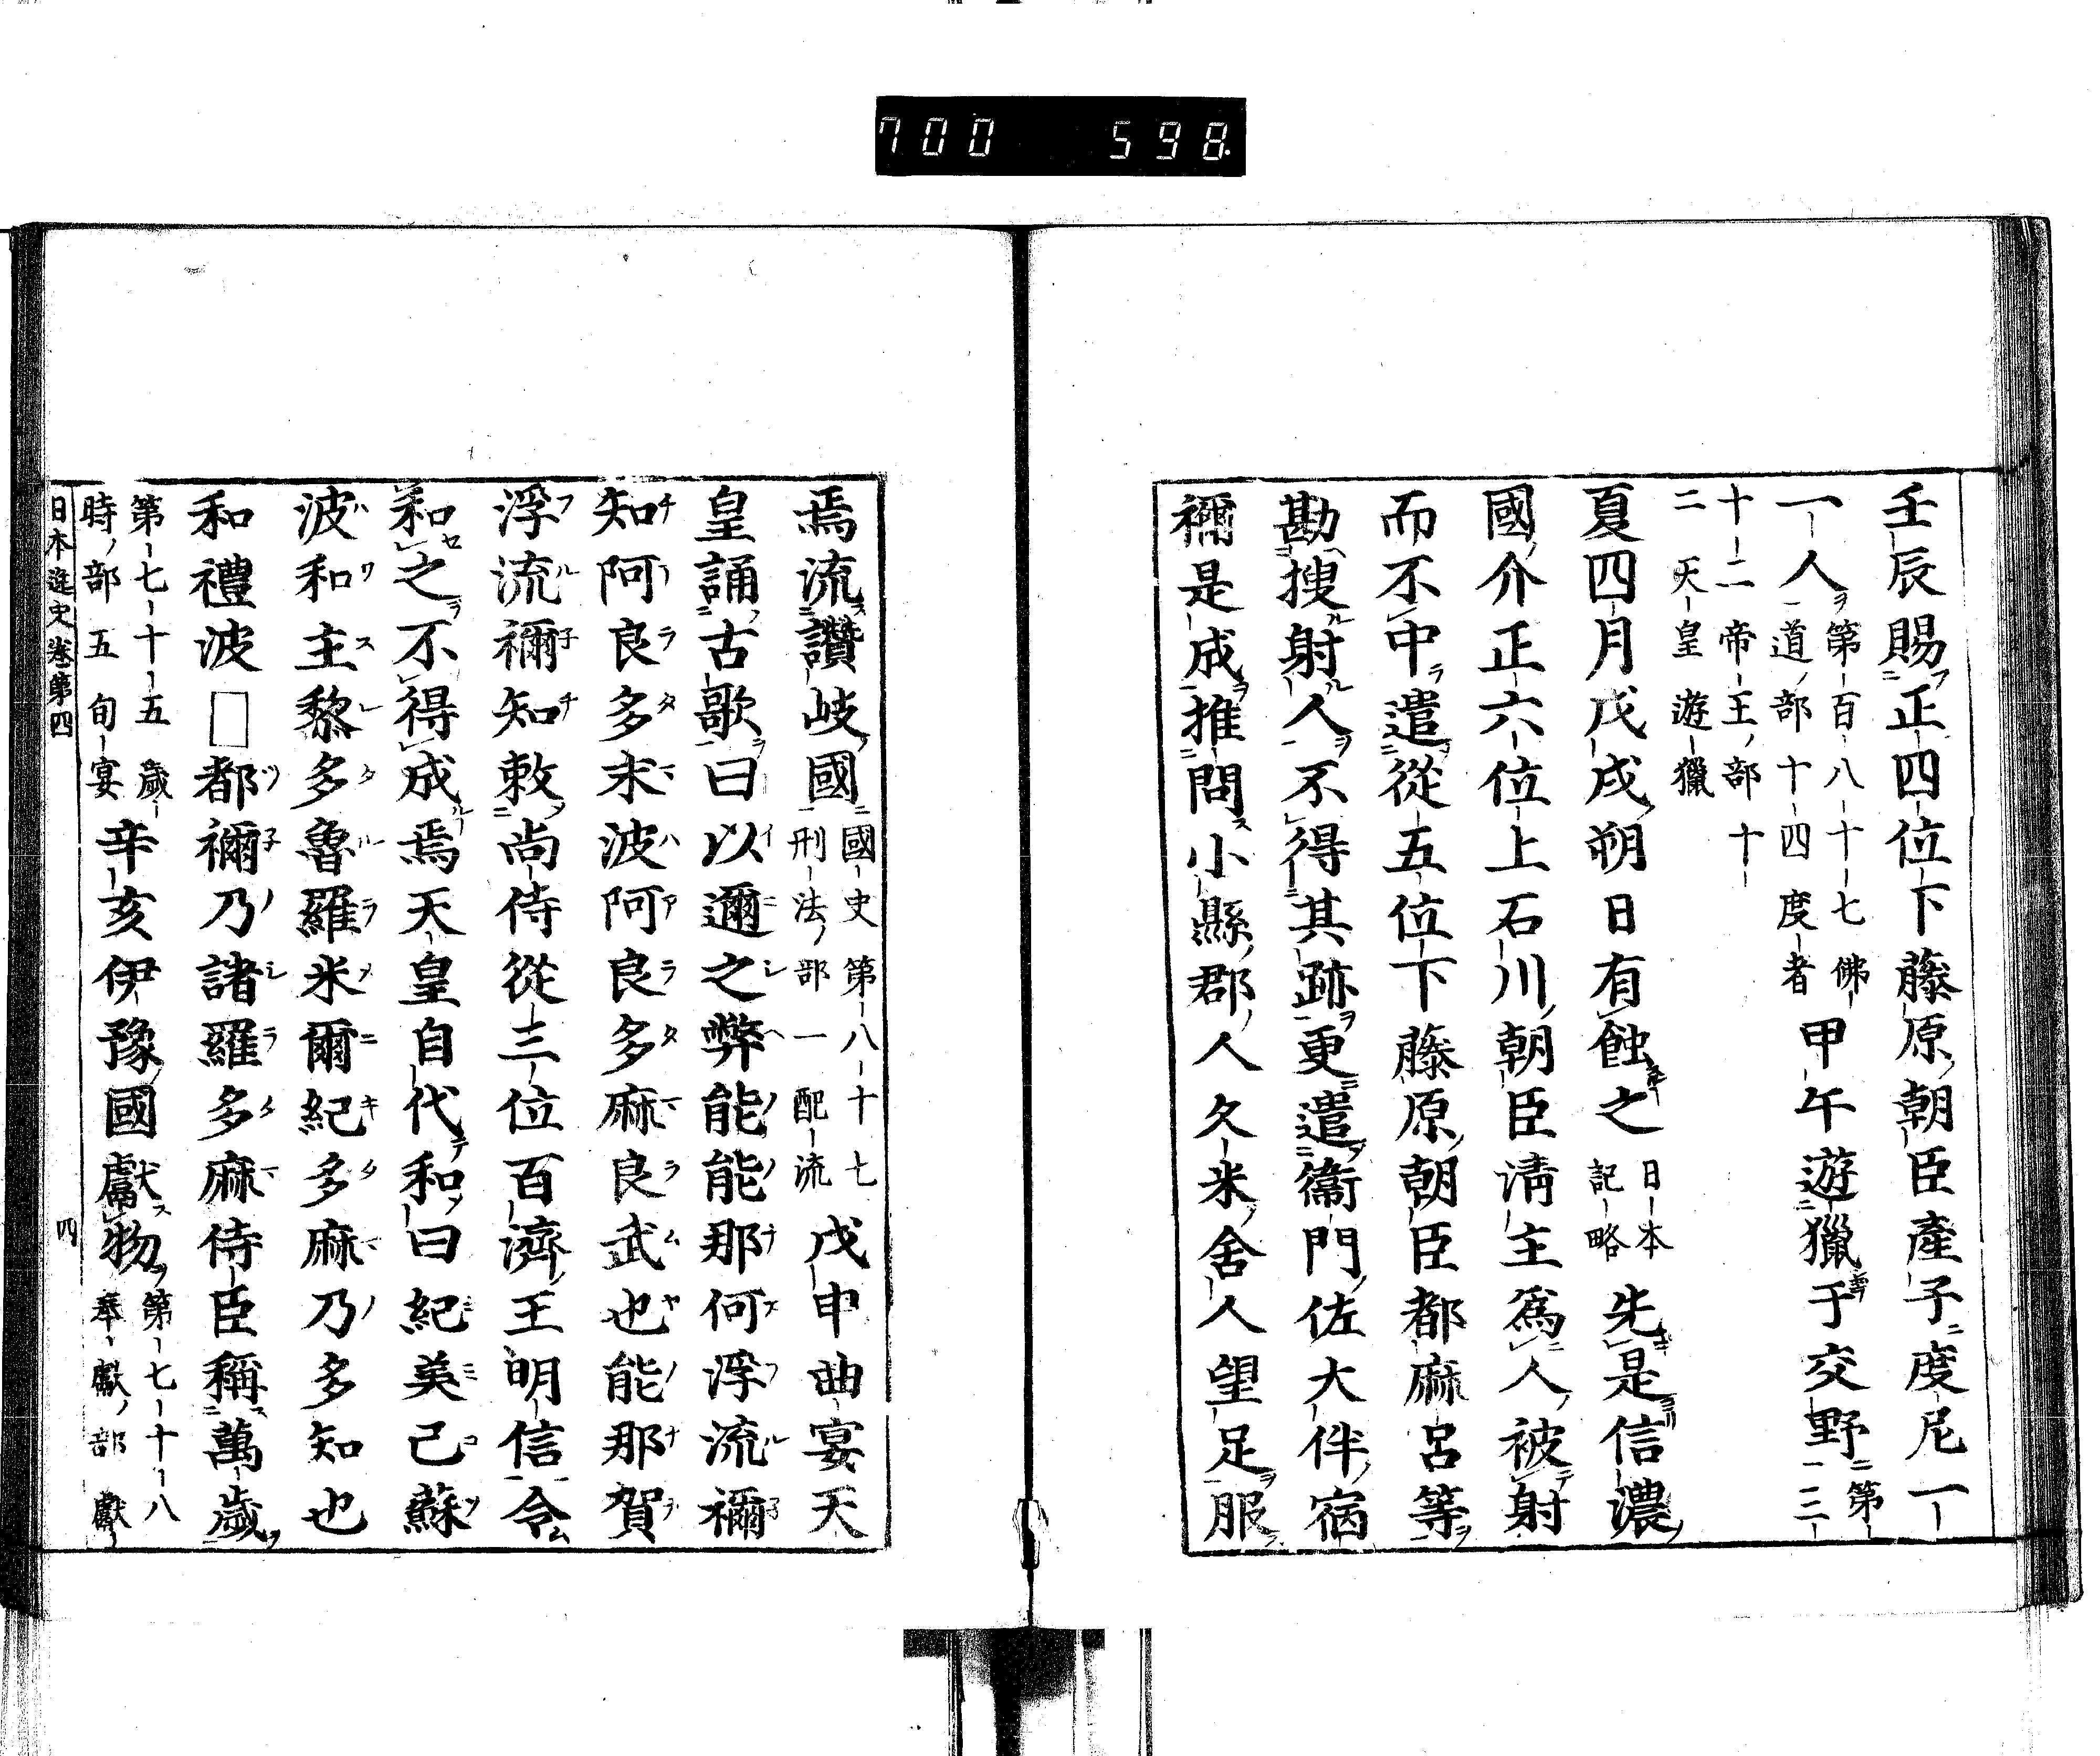 700 598
壬辰賜正四位下藤原朝臣產子度尼一
一人第百八十七佛道部十四度者甲午遊獵于交野第三
十二帝王部十二天皇遊獵
夏四月戊戌朔日有蝕之日本記略先是信濃
國介正六位上石川朝臣淸主爲人被射
而不中遣從五位下藤原朝臣都麻呂等
勘搜射人不得其跡更遣衞門佐大伴宿
禰是成推問小縣郡人久米舍人望足服
焉流讚岐國國史第八十七刑法部一配流戊申曲宴天
皇誦古歌曰以邇之弊能能那何浮流禰
知阿良多末波阿良多麻良武也能那賀
浮流禰知敕尚侍從三位百濟王明信令
和之不得成焉天皇自代和曰紀美己蘇
波和主黎多魯羅米爾紀多麻乃多知也
和禮波□都禰乃諸羅多麻侍臣稱萬歲
第七十五歲時部五旬宴辛亥伊豫國獻物第七十八奉獻部獻
日本逸史卷第四 四